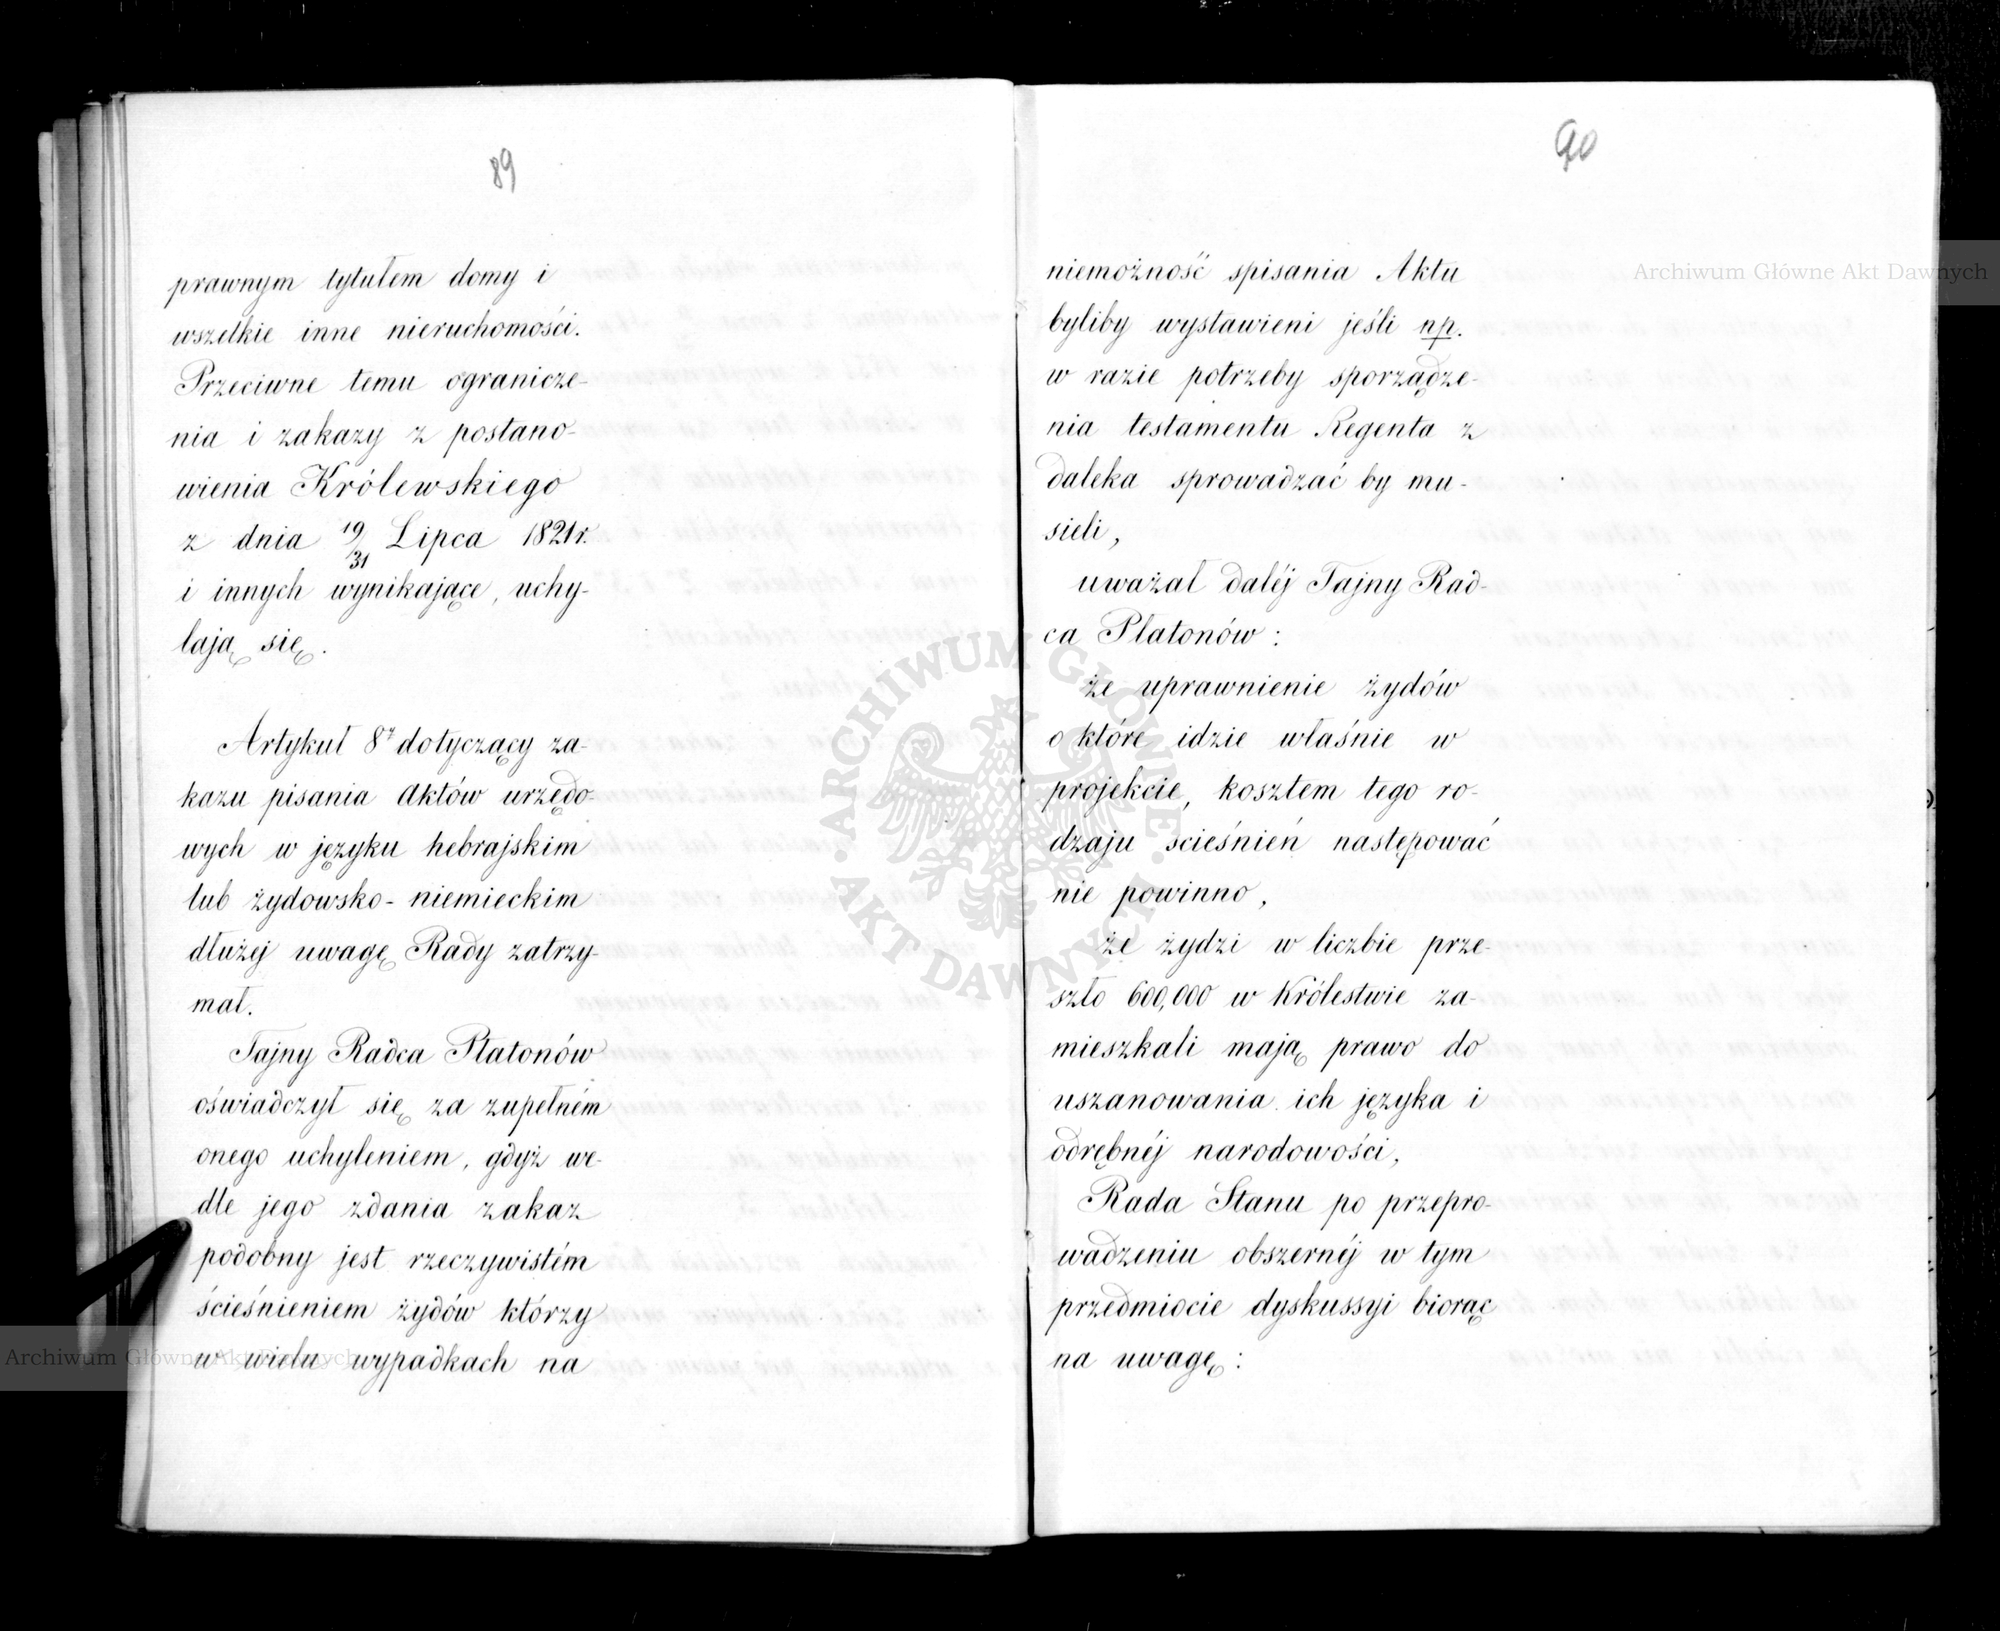 89
prawnym tytułem domy i
wszelkie inne nieruchomości.
Przeciwne temu ogranicze-
nia i zakazy z postano-
wienia Królewskiego
z dnia 19/31 Lipca 1821 r.
i innych wynikające, uchy-
lają się.
Artykuł 8y dotyczący za-
kazu pisania Aktów urzędo-
wych w języku hebrajskim
lub żydowsko-niemieckim
dłużej uwagę Rady zatrzy-
mał.
Tajny Radca Płatonów
oświadczył się za zupełném
onego uchyleniem, gdyż we-
dle jego zdania zakaz
podobny jest rzeczywistém
ścieśnieniem żydów którzy
w wielu wypadkach na
90
niemożność spisania Aktu
byliby wystawieni jeśli np.
w razie potrzeby sporządze-
nia testamentu Regenta z
daleka sprowadzać by mu-
sieli,
uważał daléj Tajny Rad-
ca Płatonów:
że uprawnienie żydów
o które idzie właśnie w
projekcie, kosztem tego ro-
dzaju scieśnień następować
nie powinno,
że żydzi w liczbie prze-
szło 600,000 w Królestwie za-
mieszkali mają prawo do
uszanowania ich języka i
odrębnéj narodowości,
Rada Stanu po przepro-
wadzeniu obszernéj w tym
przedmiocie dyskussyi biorąc
na uwagę:
Archiwum Główne Akt Dawnych
Archiwum Główne Akt Dawnych
ARCHIWUM GŁÓWNE AKT DAWNYCH